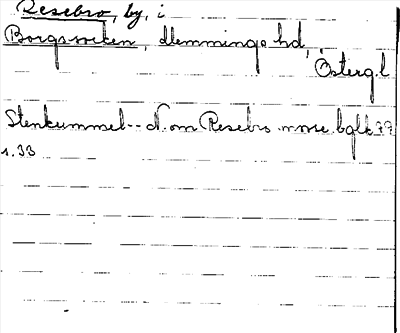 Resebro, by, i
Borgs socken, Memmings hd,
Östergl
Stenkummel -- N. om Resebro mosse. bglk 79
s. 33